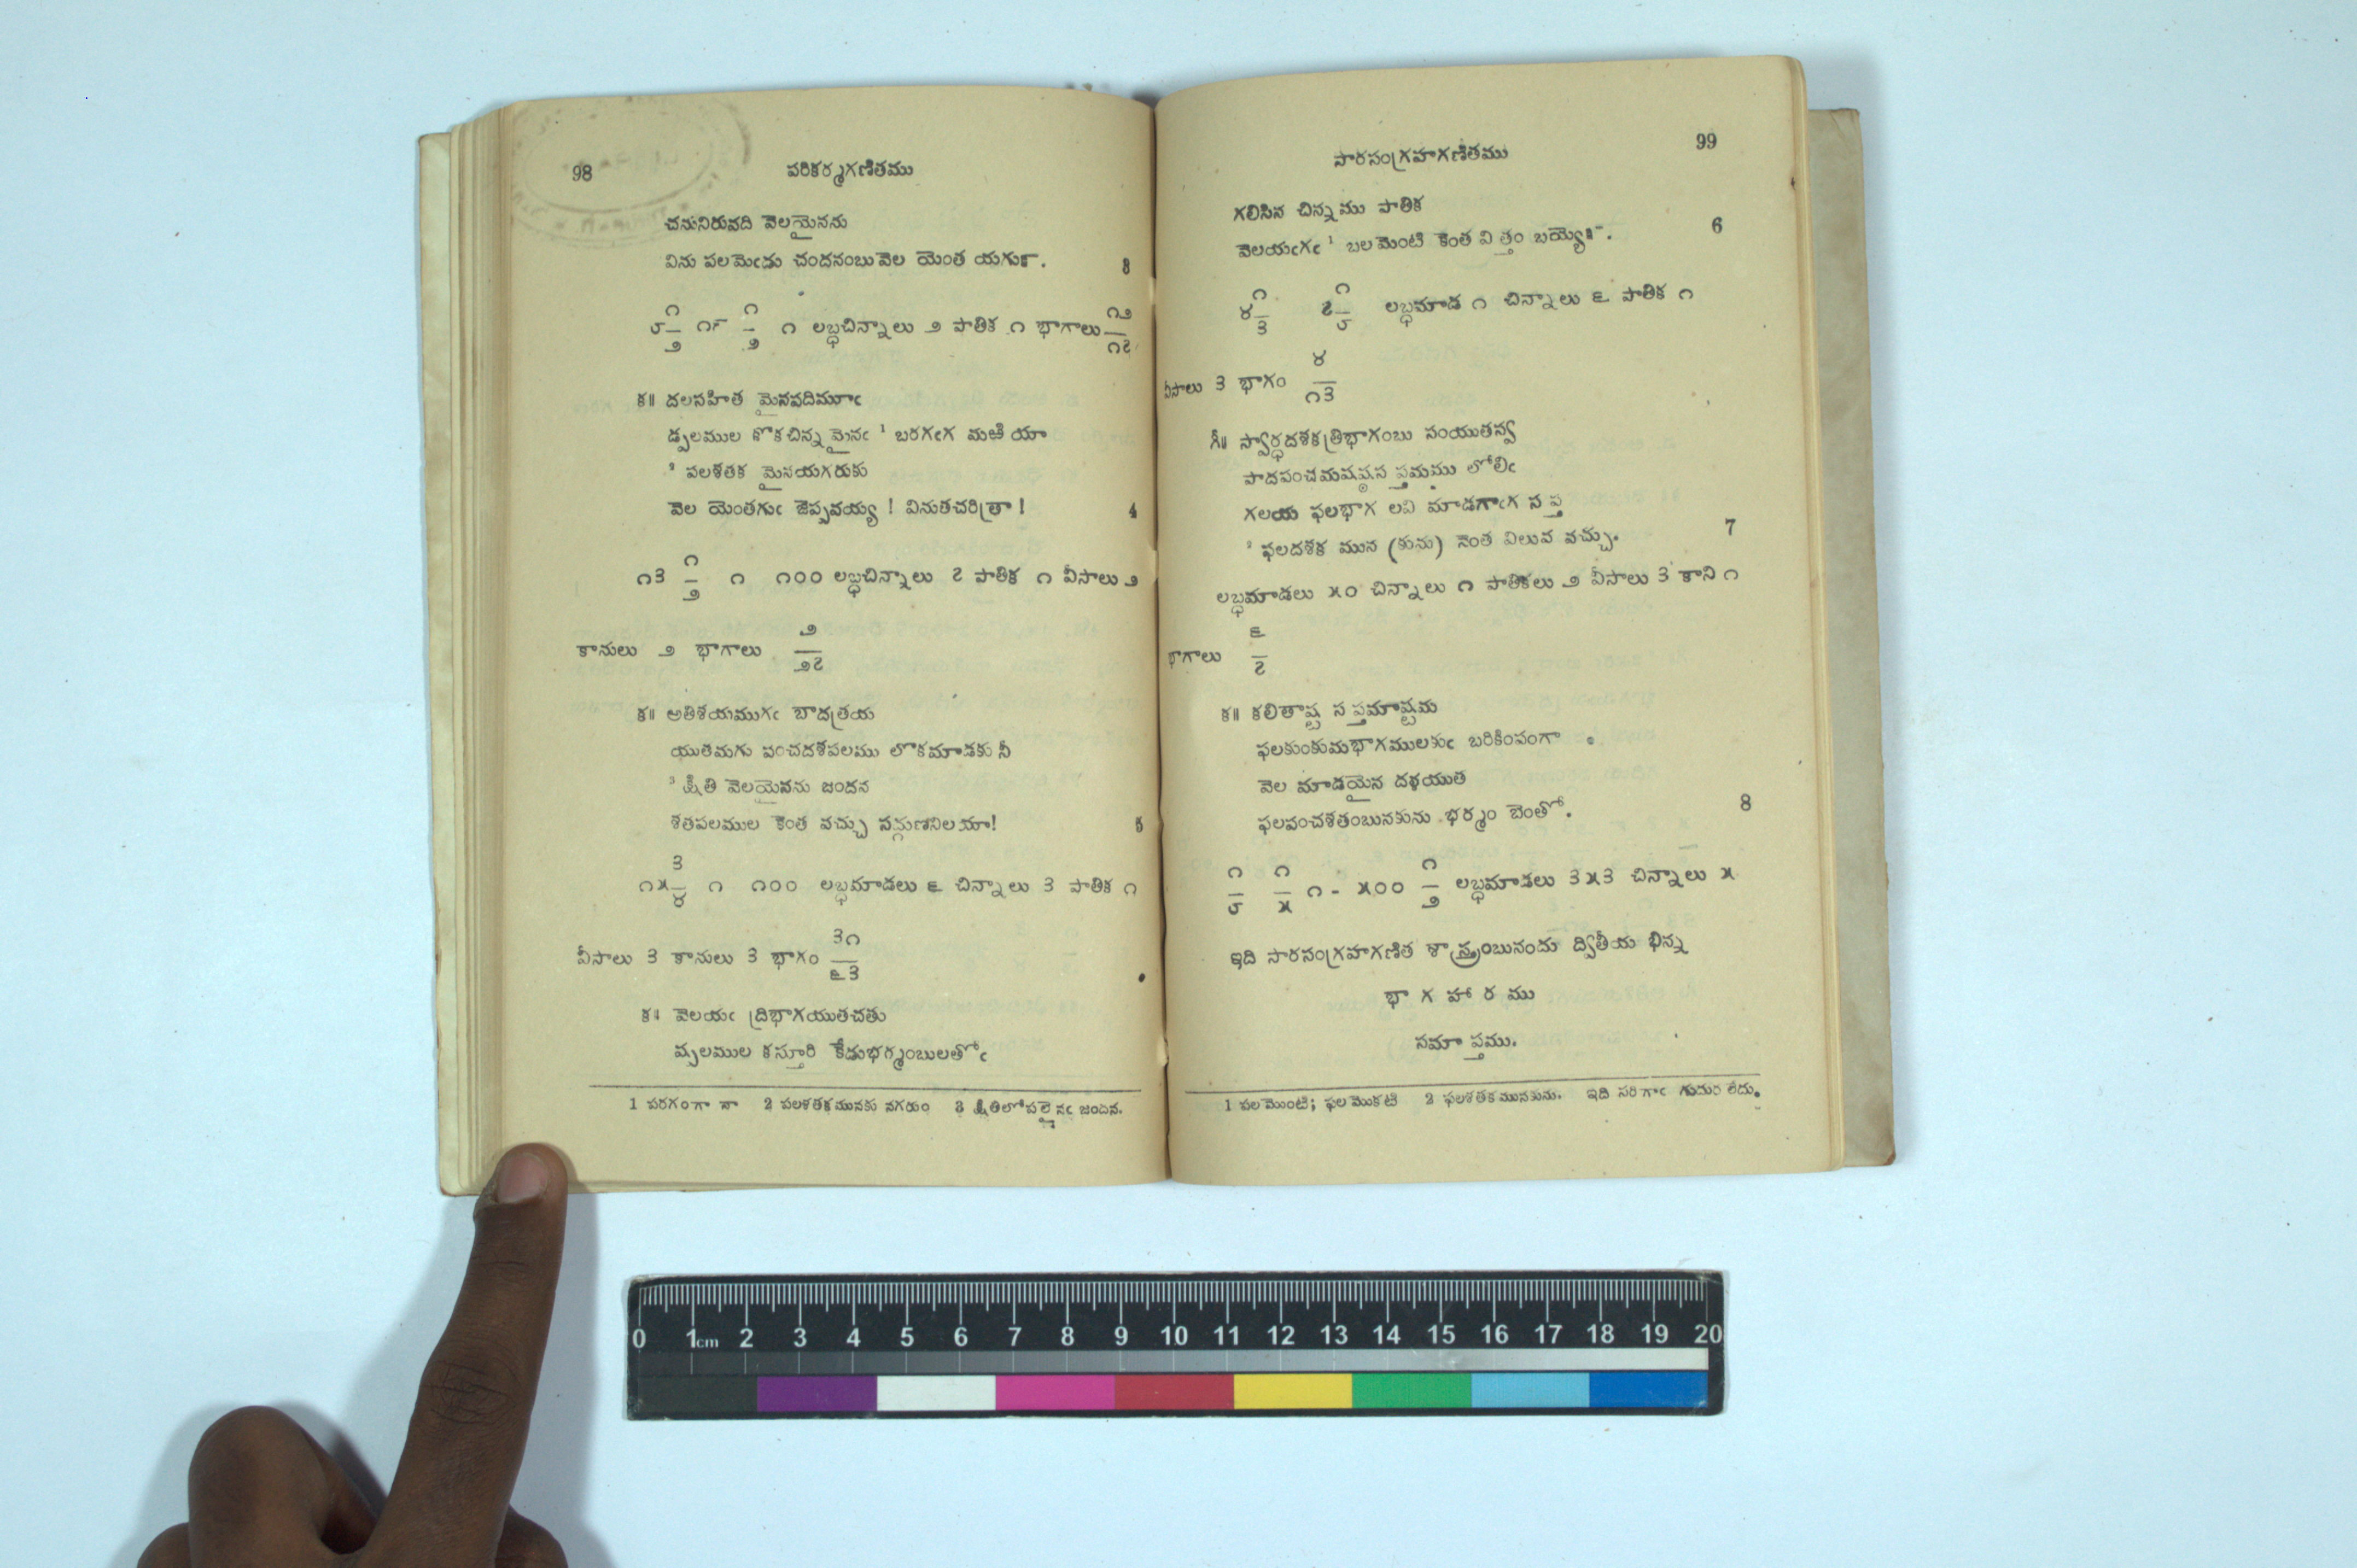 98
పరికర్మగణితము
చనునిరువది వెలయైనను
విను పలమెఁడు చందనంబువెల యెంత యగుౘ. 3
౧ ౧ ౧౨
౮— ౧౯ — ౧ లబ్ధచిన్నాలు ౨ పాతిక ౧ భాగాలు —
౨ ౨ ౧౭
క॥ దలసహిత మైనపదిమూఁ
డ్పలముల కొకచిన్న మైనఁ 1 బరగఁగ మఱియా
2 పలశతక మైనయగరుకు
వెల యెంతగుఁ జెప్పవయ్య ! వినుతచరిత్రా ! 4
౧
౧౩ — ౧ ౧౦౦ లబ్ధచిన్నాలు ౭ పాతిక ౧ వీసాలు ౨
౨
౨
కానులు ౨ భాగాలు —
౨౭
క॥ అతిశయముగఁ బాదత్రయ
యుతమగు పంచదశపలము లొకమాడకు నీ
3 క్షితి వెలయైనను జందన
శతపలముల కెంత వచ్చు సద్గుణనిలయా! 5
౩
౧౫— ౧ ౧౦౦ లబ్ధమాడలు ౬ చిన్నాలు ౩ పాతిక ౧
౪
౩౧
వీసాలు ౩ కానులు ౩ భాగం —
౬౩
క॥ వెలయఁ ద్రిభాగయుతచతు
ష్పలముల కస్తూరి కేడుభర్మంబులతోఁ
1 పరగంగా నా 2 పలశతకమునకు నగరుం 3 క్షితిలోపలైనఁ జందన.
సారసంగ్రహగణితము
99
గలిసిన చిన్నము పాతిక
వెలయఁగఁ 1 బలమెంటి కెంత విత్తం బయ్యెౙ. 6
౧ ౧
౪— ౭— లబ్ధమాడ ౧ చిన్నాలు ౬ పాతిక ౧
౩ ౮
౪
వీసాలు ౩ భాగం —
౧౩
గీ॥ స్వార్ధదశకత్రిభాగంబు సంయుతస్వ
పాదపంచమషష్ఠస ప్తమము లోలిఁ
గలయ ఫలభాగ లవి మాడగాఁగ స ప్త
2 ఫలదశక మున (కును) నెంత విలువ వచ్చు. 7
లబ్ధమాడలు ౫౦ చిన్నాలు ౧ పాతికలు ౨ వీసాలు ౩ కాని ౧
౬
భాగాలు —
౭
క॥ కలితాష్ట స ప్తమాష్టమ
ఫలకుంకుమభాగములకుఁ బరికింపంగా
వెల మాడయైన దళయుత
ఫలపంచశతంబునకును భర్మం బెంతో. 8
౧ ౧ ౧
— — ౧ - ౫౦౦ — లబ్ధమాడలు ౩౫౩ చిన్నాలు ౫
౮ ౫ ౨
ఇది సారసంగ్రహగణిత శాస్త్రంబునందు ద్వితీయ భిన్న
భా గ హా ర ము
సమా ప్తము.
1 పలమొంటి; ఫలమొకటి 2 ఫలశతకమునకును. ఇది సరిగాఁ గుదుర లేదు.
0 1cm 2 3 4 5 6 7 8 9 10 11 12 13 14 15 16 17 18 19 20